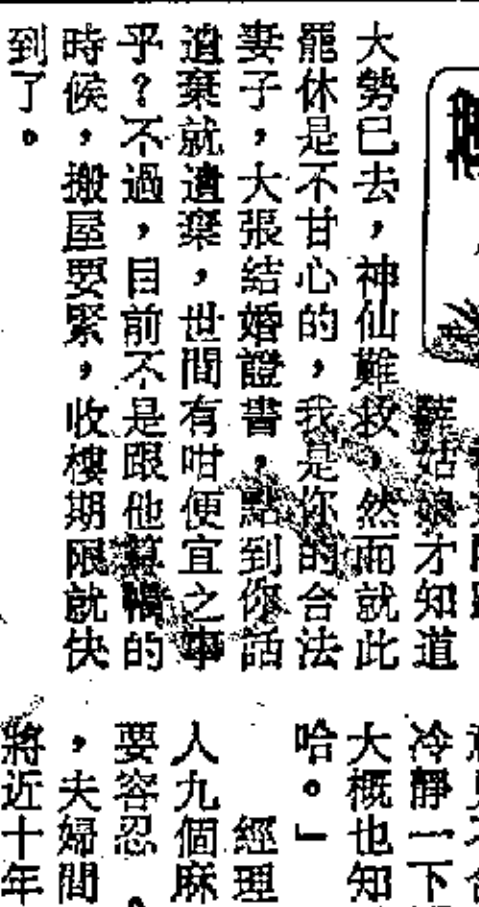 薛姑娘才知道
大勢已去，神仙難救，然而就此
罷休是不甘心的，我是你的合法
妻子，大張結婚證書，點到你話
遺棄就遺棄，世間有咁便宜之事
乎？不過，目前不是跟他算賬的
時候，搬屋要緊，收樓期限就快
到了。
冷靜一下
大概也知
哈。」
經理
人九個麻
要容忍。
，夫婦間
將近十年